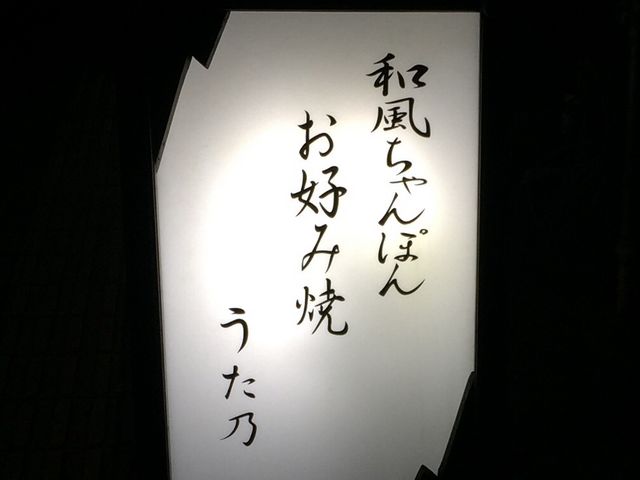 和風ちゃんぽん
お好み焼
うた乃